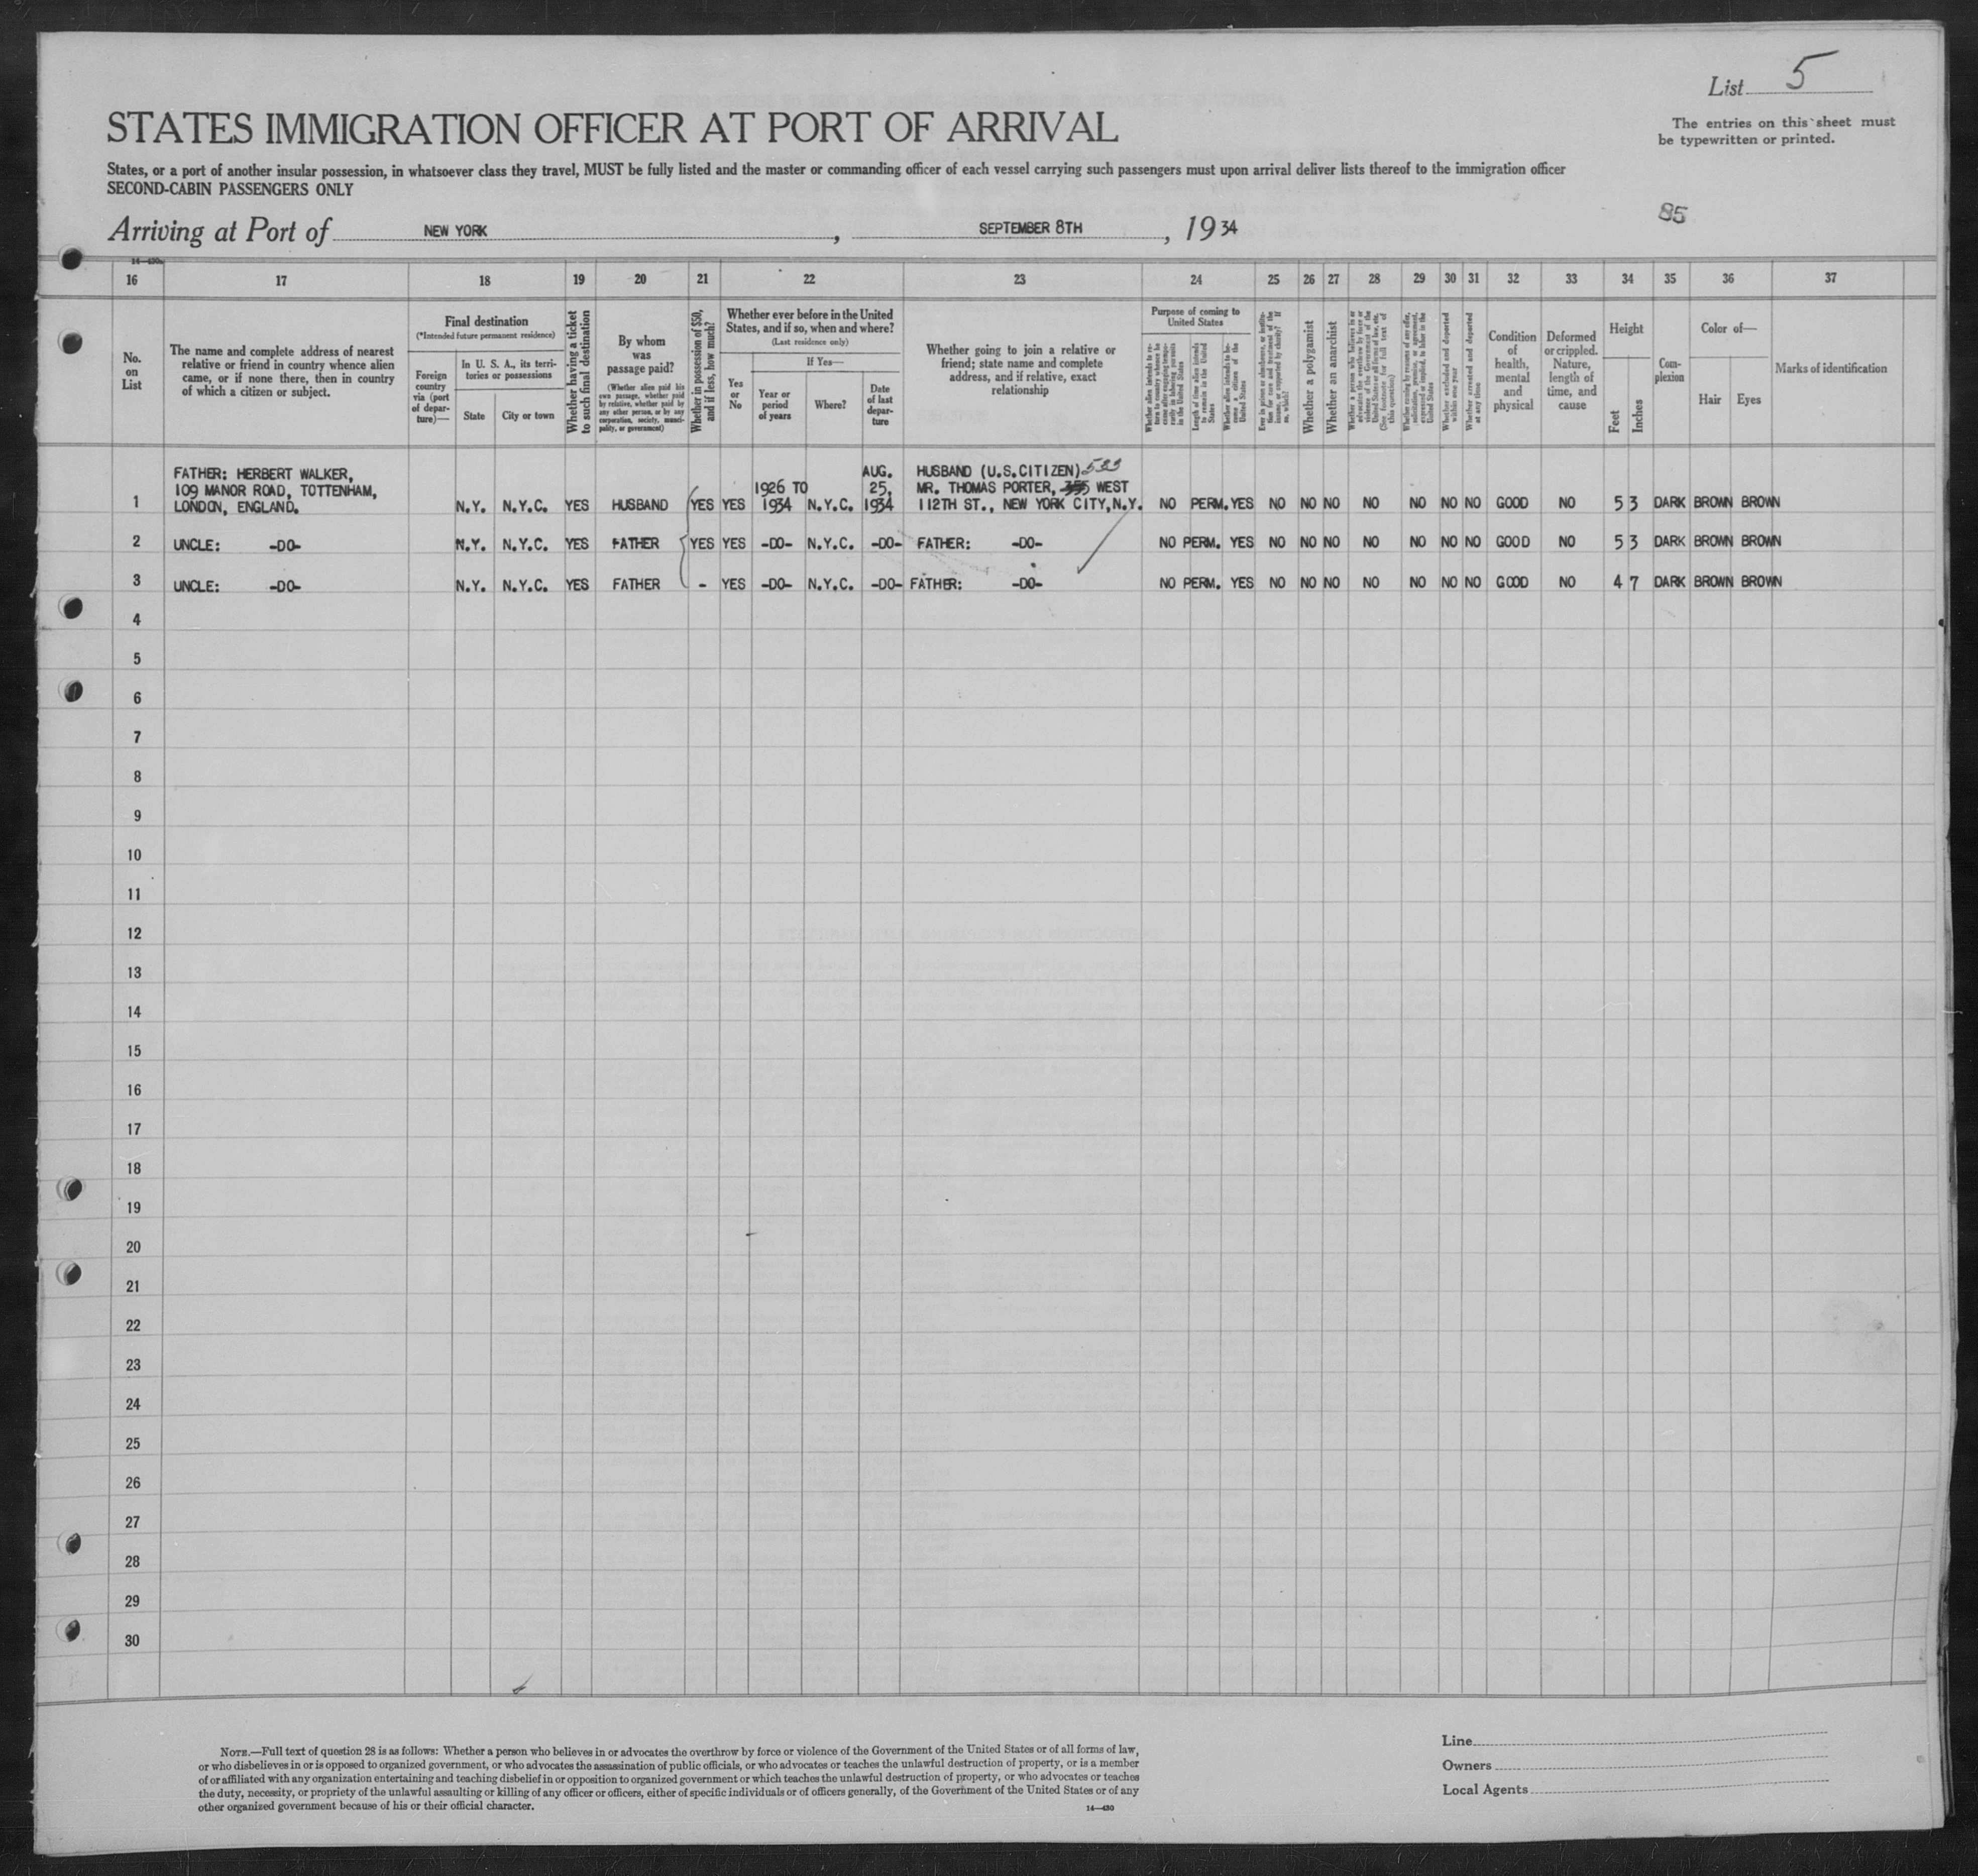 List 5
The entries on this sheet must
be typewritten or printed.
STATES IMMIGRATION OFFICER AT PORT OF ARRIVAL
States, or a port of another insular possession, in whatsoever class they travel, MUST be fully listed and the master or commanding officer of each vessel carrying such passengers must upon arrival deliver lists thereof to the immigration officer
SECOND-CABIN PASSENGERS ONLY
85
Arriving at Port of NEW YORK, SEPTEMBER 8TH, 1934
16 17 18 19 20 21 22 23 24 25 26 27 28 29 30 31 32 33 34 35 36 37
No.
on
List
The name and complete address of nearest
relative or friend in country whence alien
came, or if none there, then in country
of which a citizen or subject.
Final destination
(*Intended future permanent residence)
Foreign
country
via (port
of depar-
ture)—
In U. S. A., its terri-
tories or possessions
State
City or town
Whether having a ticket
to such final destination
By whom
was
passage paid?
(Whether alien paid his
own passage, whether paid
by relative, whether paid by
any other person, or by any
corporation, society, munici-
pality, or government)
Whether in possession of $50,
and if less, how much?
Whether ever before in the United
States, and if so, when and where?
(Last residence only)
Yes
or
No
If Yes—
Year or
period
of years
Where?
Date
of last
depar-
ture
Whether going to join a relative or
friend; state name and complete
address, and if relative, exact
relationship
Purpose of coming to
United States
Whether a polygamist
Whether an anarchist
Whether excluded and deported
within one year
Whether arrested and deported
at any time
Condition
of
health,
mental
and
physical
Deformed
or crippled.
Nature,
length of
time, and
cause
Height
Feet
Inches
Com-
plexion
Color of—
Hair Eyes
Marks of identification
FATHER: HERBERT WALKER, AUG. HUSBAND (U.S.CITIZEN)
109 MANOR ROAD, TOTTENHAM, 1926 TO 25, MR. THOMAS PORTER, WEST
1 LONDON, ENGLAND. N.Y. N.Y.C. YES HUSBAND YES YES 1934 N.Y.C. 1934 112TH ST., NEW YORK CITY, N.Y. NO PERM. YES NO NO NO NO NO NO NO GOOD NO 5 3 DARK BROWN BROWN
2 UNCLE: -DO- N.Y. N.Y.C. YES FATHER YES YES -DO- N.Y.C. -DO- FATHER: -DO- NO PERM. YES NO NO NO NO NO NO NO GOOD NO 5 3 DARK BROWN BROWN
3 UNCLE: -DO- N.Y. N.Y.C. YES FATHER - YES -DO- N.Y.C. -DO- FATHER: -DO- NO PERM. YES NO NO NO NO NO NO NO GOOD NO 4 7 DARK BROWN BROWN
4
5
6
7
8
9
10
11
12
13
14
15
16
17
18
19
20
21
22
23
24
25
26
27
28
29
30
NOTE.—Full text of question 28 is as follows: Whether a person who believes in or advocates the overthrow by force or violence of the Government of the United States or of all forms of law,
or who disbelieves in or is opposed to organized government, or who advocates the assassination of public officials, or who advocates or teaches the unlawful destruction of property, or is a member
of or affiliated with any organization entertaining and teaching disbelief in or opposition to organized government or which teaches the unlawful destruction of property, or who advocates or teaches
the duty, necessity, or propriety of the unlawful assaulting or killing of any officer or officers, either of specific individuals or of officers generally, of the Government of the United States or of any
other organized government because of his or their official character.
14—430
Line
Owners
Local Agents